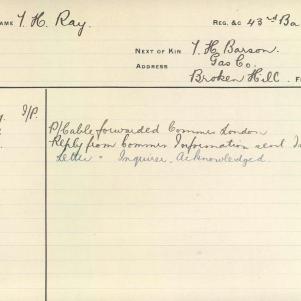 NAME T. H. Ray. REG. &C 43rd Ba
NEXT OF KIN T. H. Barson.
ADDRESS Gas Co.
Broken Hill. F
I/P.
P/Cable forwarded Commus London
Reply from Commus Information sent I
Letter " Inquirer. Acknowledged.